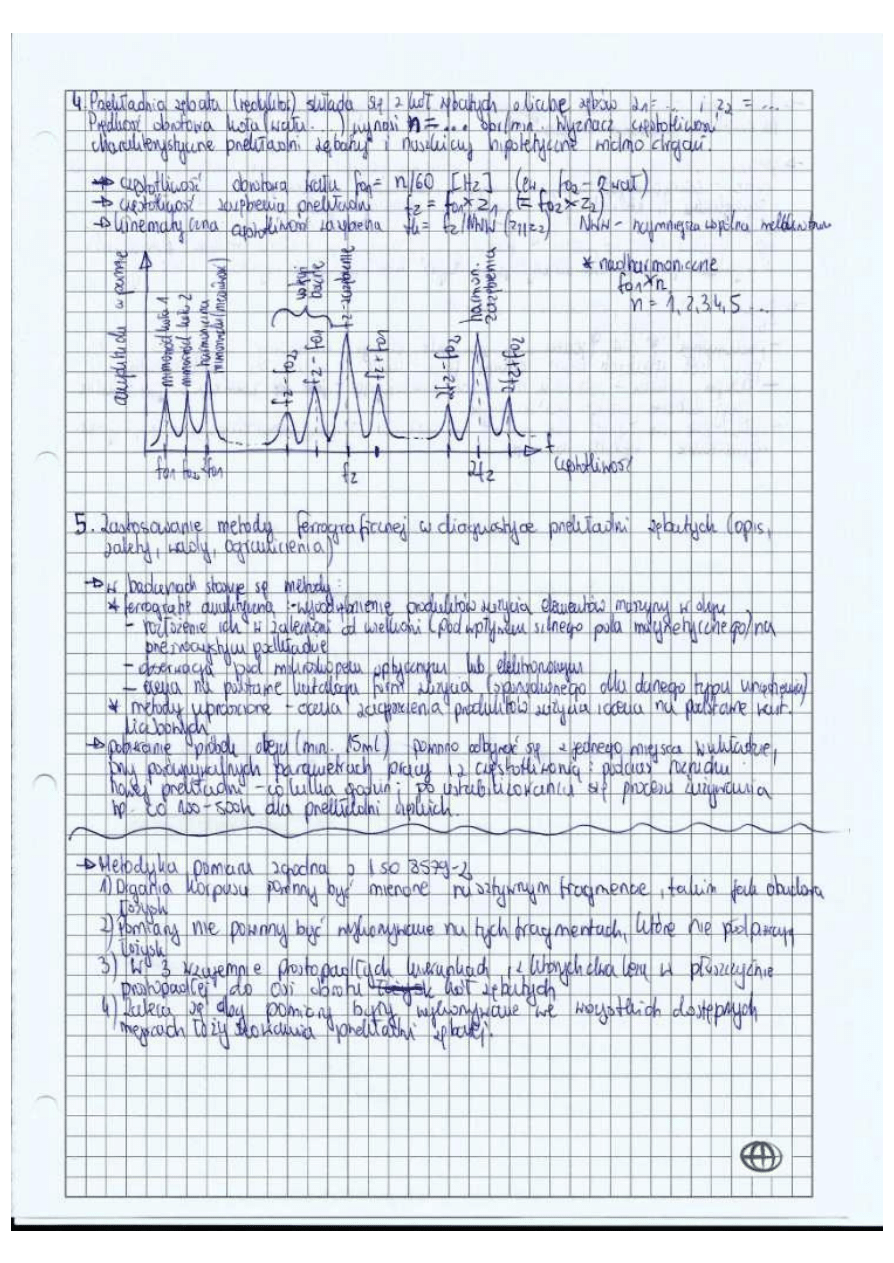 4. Przekładnia zębata (reduktor) składa się z kół zębatych o liczbie zębów z1= ... i z2 = ...
Prędkość obrotowa koła (wału ...) wynosi n = ... obr/min. Wyznacz częstotliwości
charakterystyczne przekładni zębatej i naszkicuj hipotetyczne widmo drgań.
→ częstotliwość obrotowa wału fo1 = n/60 [Hz] (ew. fo2 - 2 wał)
→ częstotliwość zazębienia przekładni fz = fo1 × z1 (= fo2 × z2)
→ kinematyczna częstotliwość zazębienia fk = fz/NWW (z1, z2) NWW - najmniejsza wspólna
* nadharmoniczne
fo1 × n
n = 1, 2, 3, 4, 5 ...
amplituda w paśmie
mimośród koła 1
mimośród koła 2
harmoniczna
mimośrodu
wstęgi
boczne
fz - fo2
fz - fo1
fz - zazębienie
fz + fo1
2fz - fo2
harmon.
zazębienia
2fz + fo2
fo1 fo2 2fo1 fz 2fz
f
częstotliwość
5. Zastosowanie metody ferrograficznej w diagnostyce przekładni zębatych (opis,
zalety, wady, ograniczenia)
→ w badaniach stosuje się metody:
* ferrografię analityczną: - wyodrębnienie produktów zużycia elementów maszyny w oleju
- rozłożenie ich w zależności od wielkości (pod wpływem silnego pola magnetycznego) na
przezroczystym podkładzie
- obserwacja pod mikroskopem optycznym lub elektronowym
- ocena na podstawie katalogu form zużycia (sporządzonego dla danego typu urządzenia)
* metody uproszczone - ocena zagęszczenia produktów zużycia i ocena na podstawie
liczbowych
→ pobieranie próbek oleju (min. 15ml) powinno odbywać się z jednego miejsca w układzie,
przy porównywalnych parametrach pracy i z częstotliwością: podczas rozruchu
nowej przekładni - co kilka godzin; po ustabilizowaniu się procesu zużywania
np. co 200-500h dla przekładni
→ Metodyka pomiaru zgodna z ISO 8579-2
1) Drgania korpusu powinny być mierzone na sztywnym fragmencie, takim jak obudowa
łożysk
2) Pomiary nie powinny być wykonywane na tych fragmentach, które nie podpierają
łożysk
3) W 3 wzajemnie prostopadłych kierunkach, z których dwa leżą w płaszczyźnie
prostopadłej do osi obrotu kół zębatych
4) Zaleca się aby pomiary były wykonywane we wszystkich dostępnych
miejscach łożyskowania przekładni zębatej.